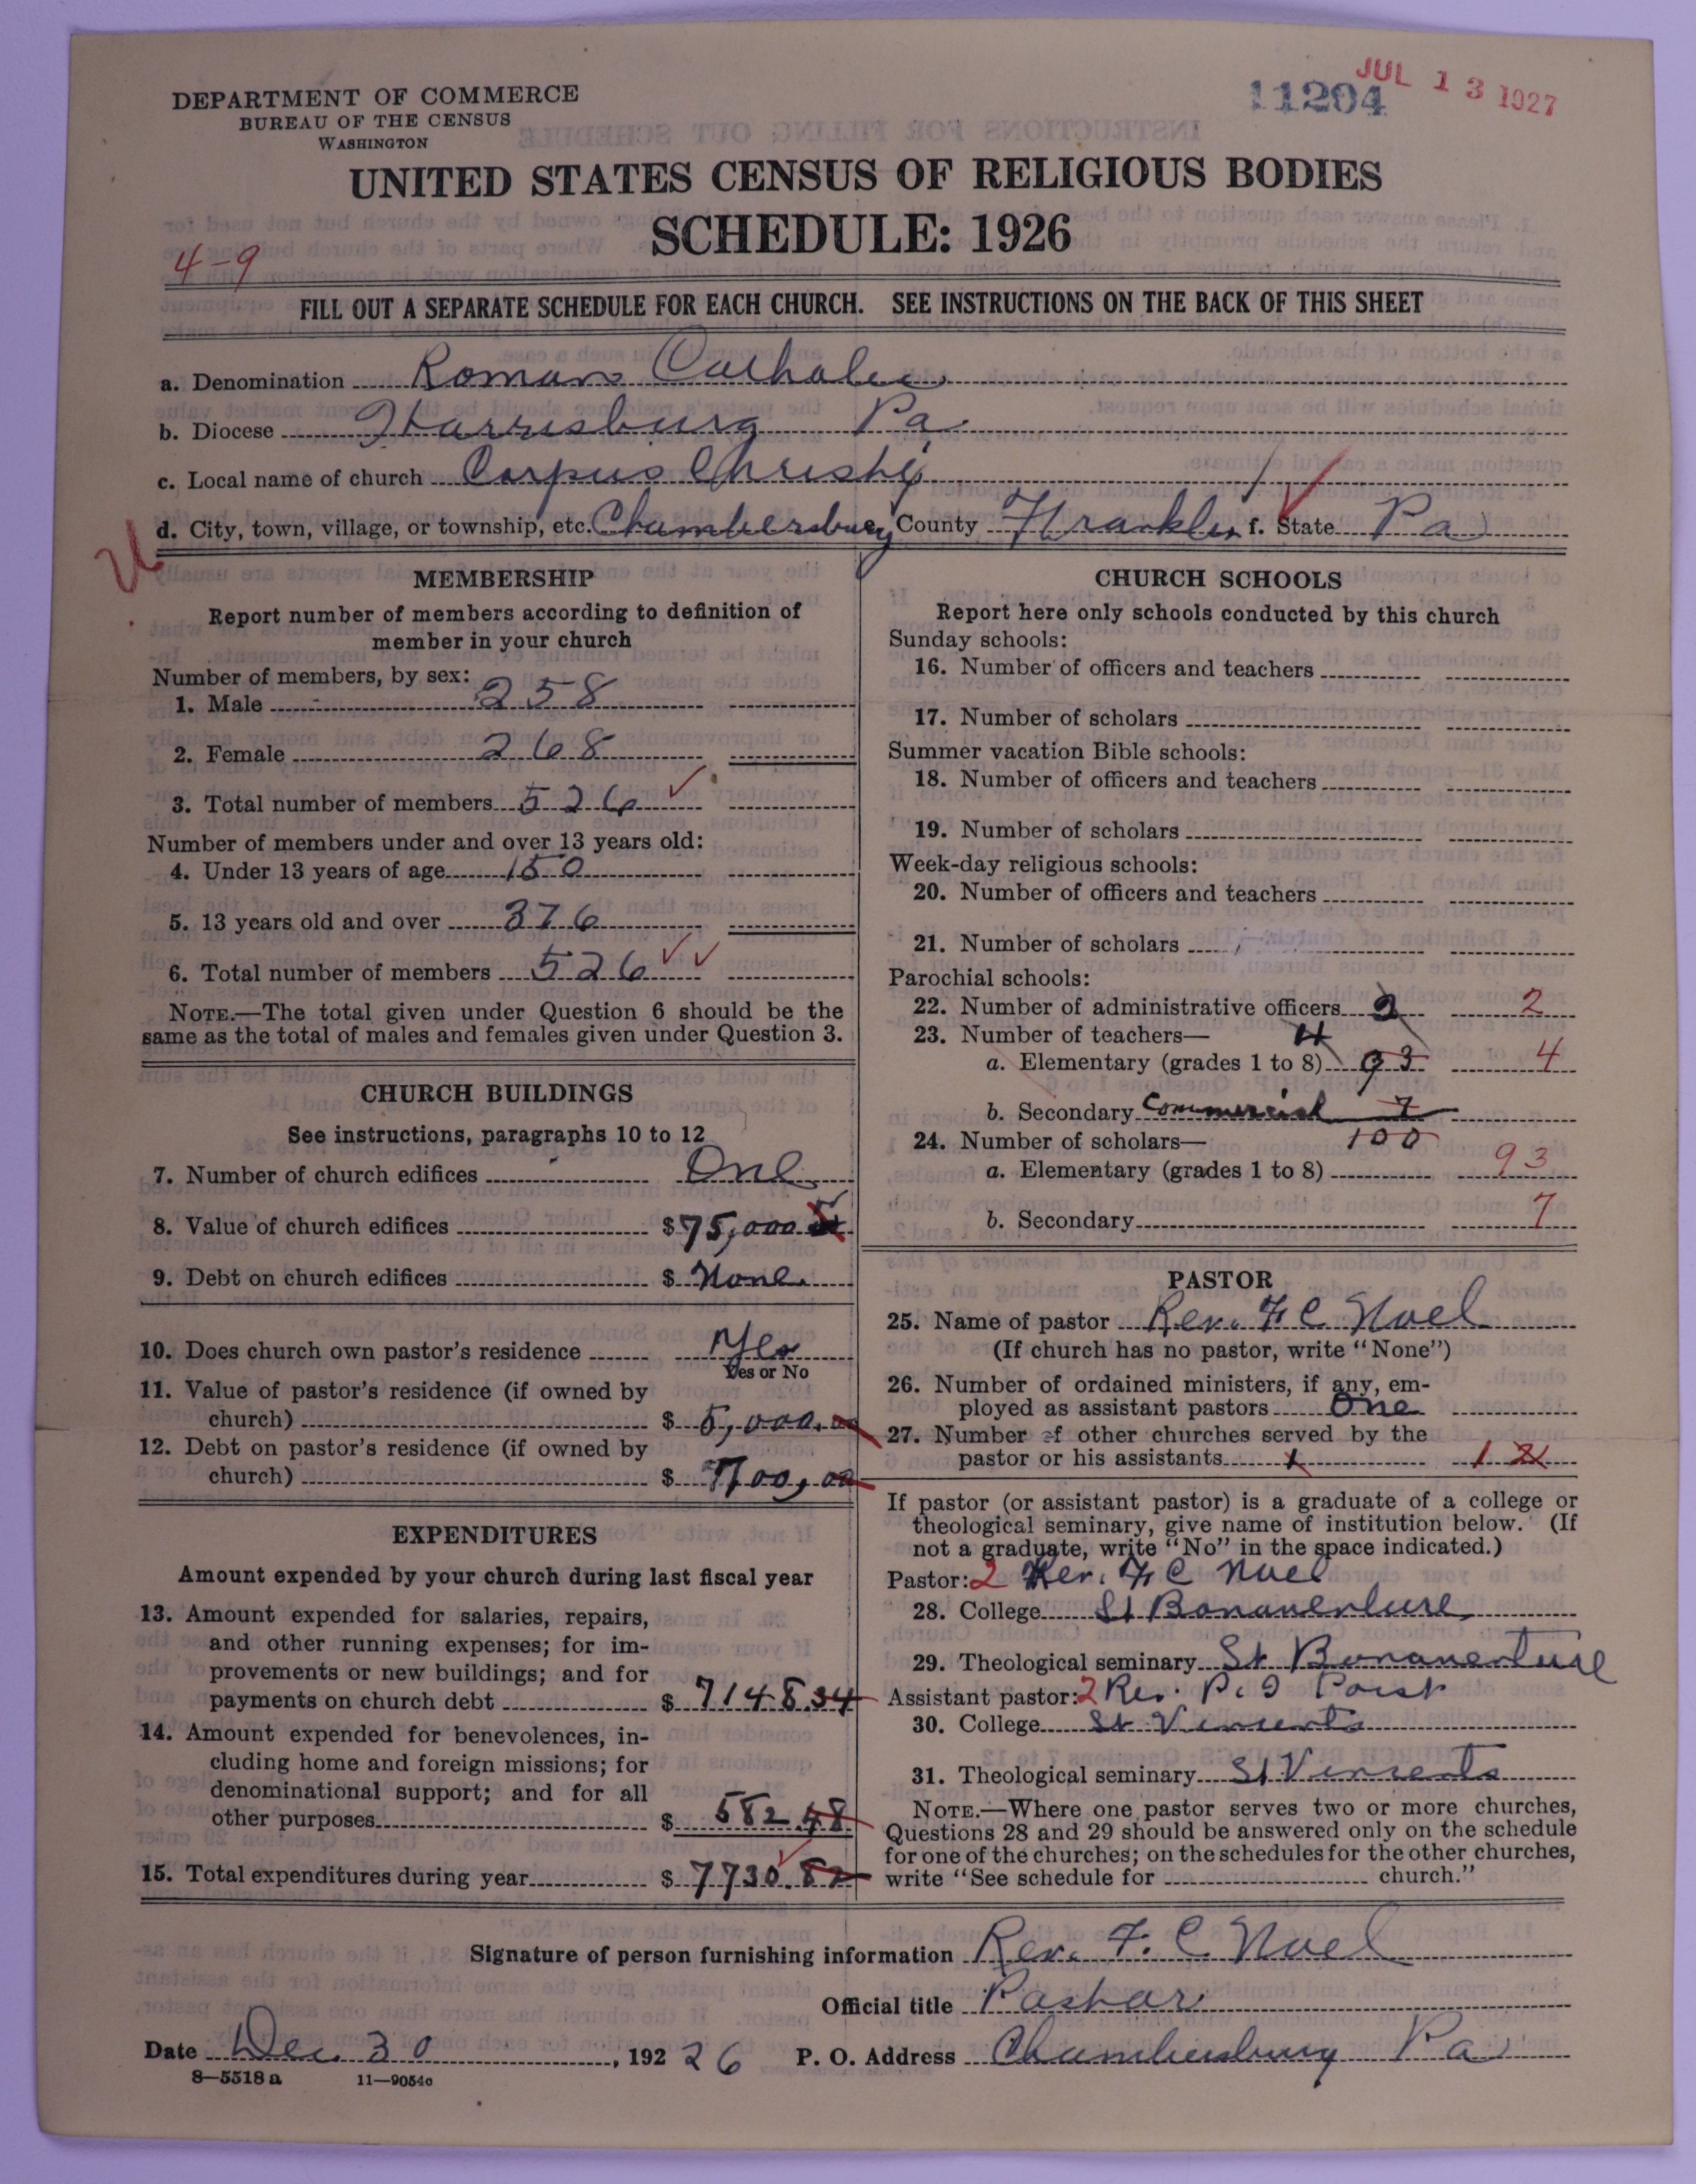 JUL 13 1927
11204
DEPARTMENT OF COMMERCE
BUREAU OF THE CENSUS
WASHINGTON
UNITED STATES CENSUS OF RELIGIOUS BODIES
SCHEDULE: 1926
4-9
FILL OUT A SEPARATE SCHEDULE FOR EACH CHURCH. SEE INSTRUCTIONS ON THE BACK OF THIS SHEET
a. Denomination Roman Catholic
b. Diocese Harrisburg Pa
c. Local name of church Corpus Christi
d. City, town, village, or township, etc. Chambersburg County Franklin f. State Pa
MEMBERSHIP
Report number of members according to definition of
member in your church
Number of members, by sex:
1. Male 258
2. Female 268
3. Total number of members 526
Number of members under and over 13 years old:
4. Under 13 years of age 150
5. 13 years old and over 376
6. Total number of members 526
NOTE.—The total given under Question 6 should be the
same as the total of males and females given under Question 3.
CHURCH BUILDINGS
See instructions, paragraphs 10 to 12
7. Number of church edifices One
8. Value of church edifices $75,000
9. Debt on church edifices $ None
10. Does church own pastor's residence Yes
Yes or No
11. Value of pastor's residence (if owned by
church) $ 5,000.00
12. Debt on pastor's residence (if owned by
church) $ 7700,00
EXPENDITURES
Amount expended by your church during last fiscal year
13. Amount expended for salaries, repairs,
and other running expenses; for im-
provements or new buildings; and for
payments on church debt $ 7148.34
14. Amount expended for benevolences, in-
cluding home and foreign missions; for
denominational support; and for all
other purposes $ 582.48
15. Total expenditures during year $ 7730.82
CHURCH SCHOOLS
Report here only schools conducted by this church
Sunday schools:
16. Number of officers and teachers
17. Number of scholars
Summer vacation Bible schools:
18. Number of officers and teachers
19. Number of scholars
Week-day religious schools:
20. Number of officers and teachers
21. Number of scholars
Parochial schools:
22. Number of administrative officers 2 2
23. Number of teachers— 4
a. Elementary (grades 1 to 8) 93 4
b. Secondary Commercial 7
24. Number of scholars— 100
a. Elementary (grades 1 to 8) 93
b. Secondary 7
PASTOR
25. Name of pastor Rev. F C Noel
(If church has no pastor, write "None")
26. Number of ordained ministers, if any, em-
ployed as assistant pastors One
27. Number of other churches served by the
pastor or his assistants 1 1 2
If pastor (or assistant pastor) is a graduate of a college or
theological seminary, give name of institution below. (If
not a graduate, write "No" in the space indicated.)
Pastor: 2 Rev. F C Noel
28. College St Bonaventure
29. Theological seminary St Bonaventure
Assistant pastor: 2 Rev. P. J
30. College St Vincents
31. Theological seminary St Vincents
NOTE.—Where one pastor serves two or more churches,
Questions 28 and 29 should be answered only on the schedule
for one of the churches; on the schedules for the other churches,
write "See schedule for church."
Signature of person furnishing information Rev. F. C. Noel
Official title Pastor
Date Dec. 30, 192 26 P. O. Address Chambersburg Pa
8—5518 a 11—9054c